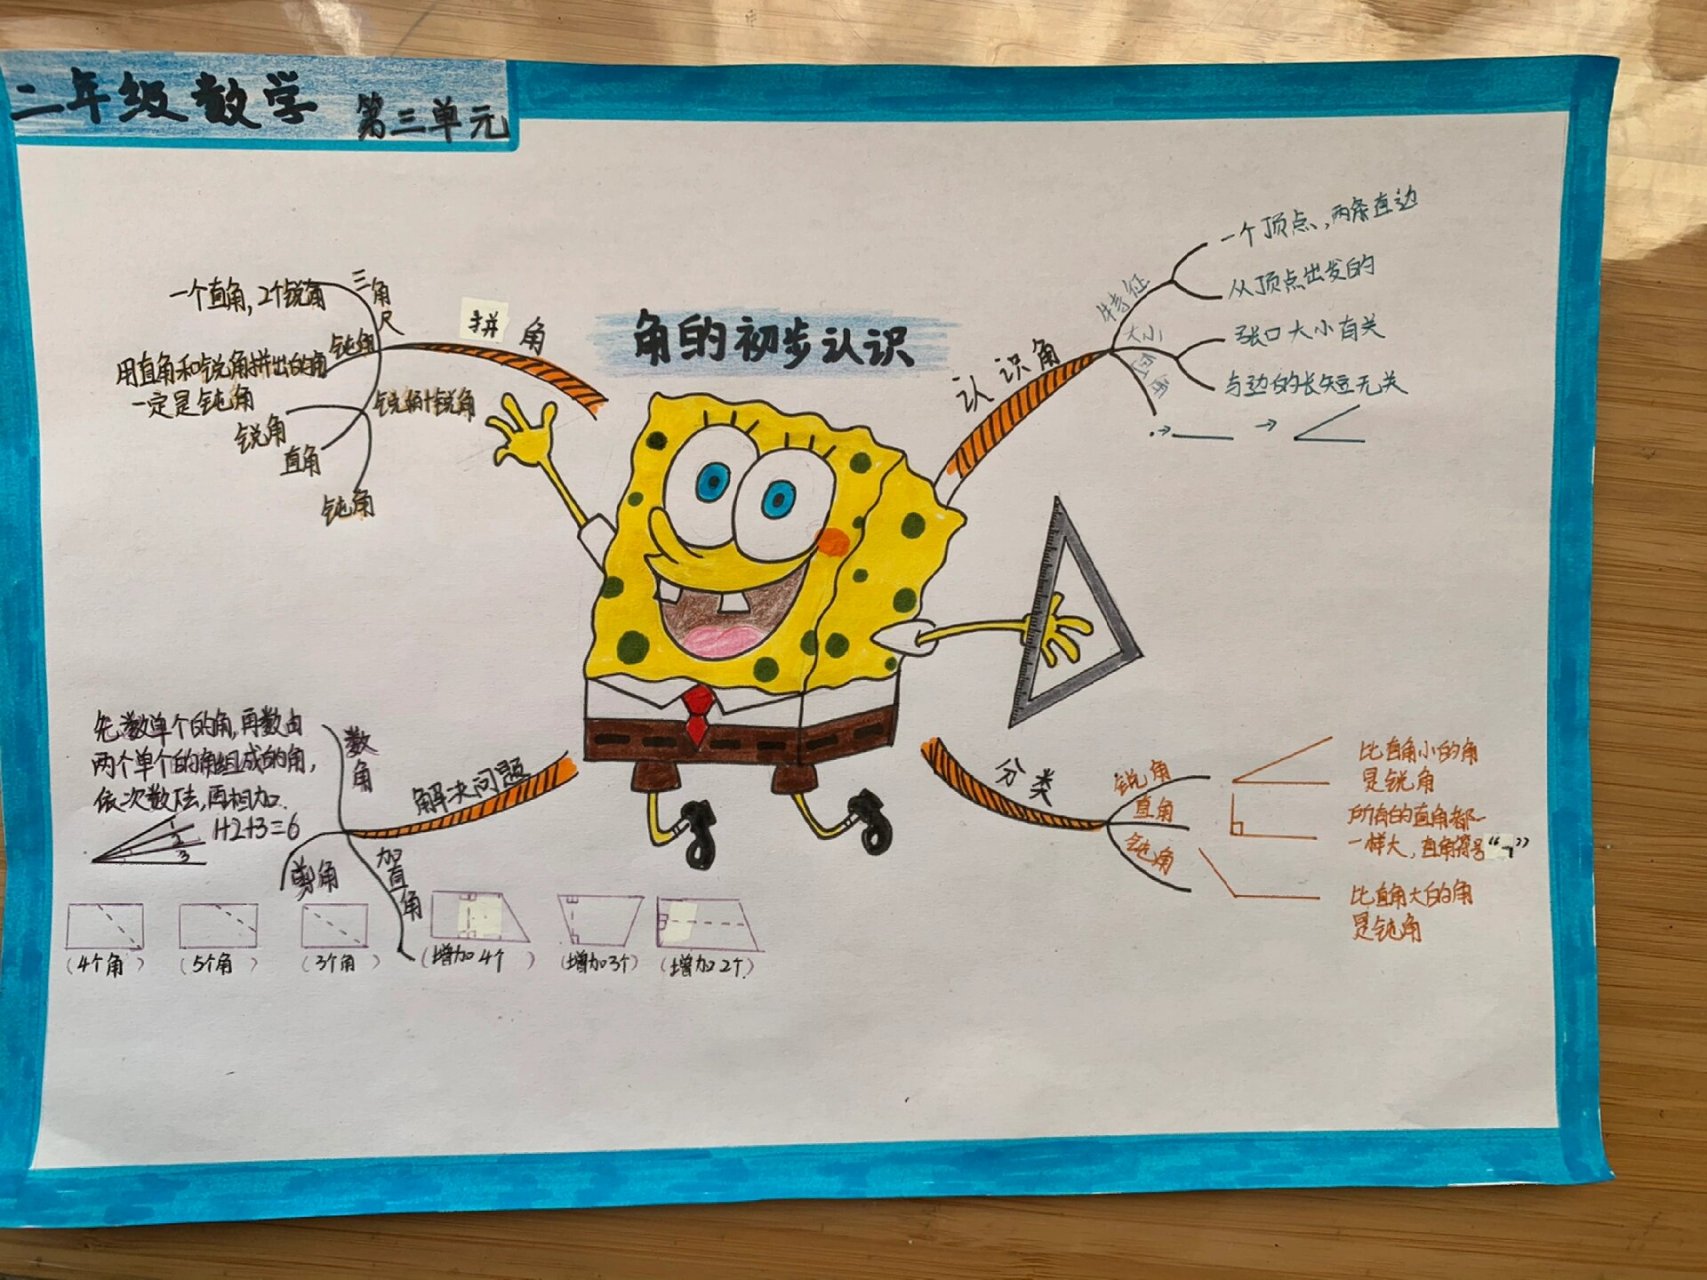 二年级数学 第三单元
角的初步认识
拼角
三角尺
一个直角，2个锐角
钝角
用直角和锐角拼出的角
一定是钝角
锐角+锐角
锐角
直角
钝角
认识角
特征
一个顶点，两条直边
从顶点出发的
大小
张口大小有关
与边的长短无关
画
解决问题
数角
先数单个的角，再数由
两个单个的角组成的角，
依次数下去，再相加．
1
2
3
1+2+3=6
剪角
（4个角）
（5个角）
（3个角）
加直角
（增加4个）
（增加3个）
（增加2个）
分类
锐角
比直角小的角
是锐角
直角
所有的直角都一
样大，直角符号“¬”
钝角
比直角大的角
是钝角